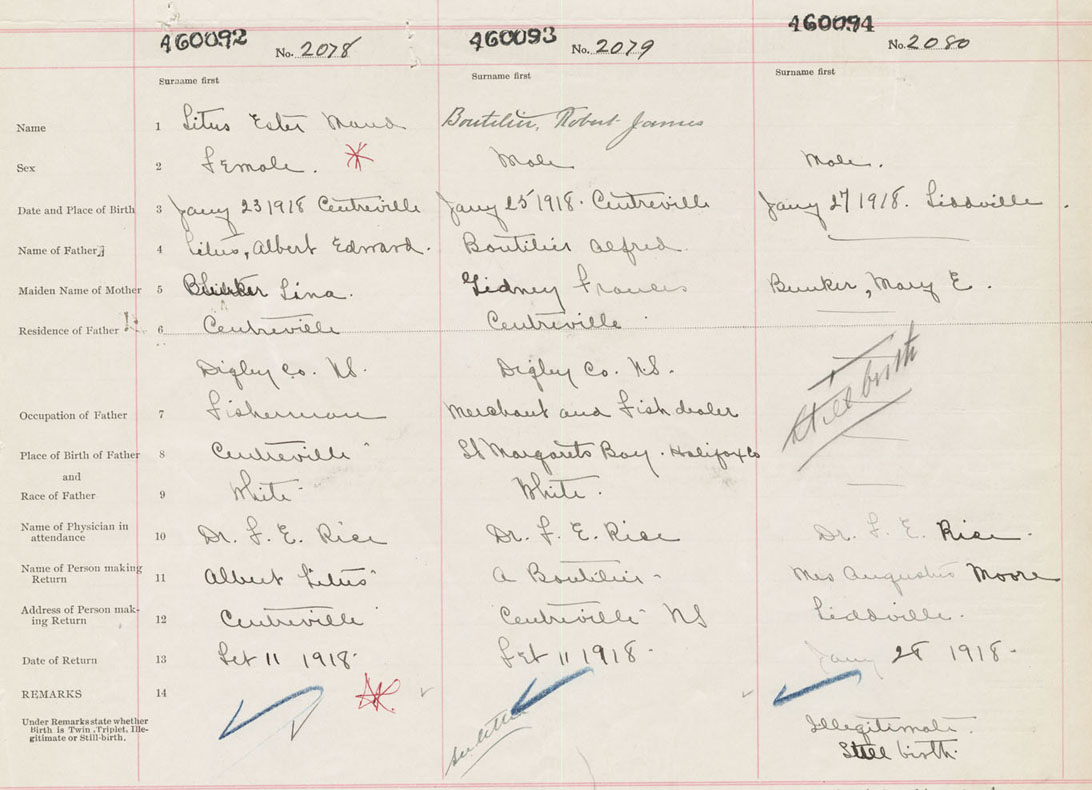 460092 No. 2078 460093 No. 2079 460094 No. 2080
Surname first Surname first Surname first
Name 1 Titus Ester Maud Boutilier, Robert James
Sex 2 Female. Male Male.
Date and Place of Birth 3 Jany 23 1918 Centreville Jany 25 1918. Centreville Jany 27 1918.
Name of Father 4 Titus, Albert Edward. Boutilier Alfred.
Maiden Name of Mother 5 Lina. Gidney Frances Bunker, Mary E.
Residence of Father 6 Centreville Centreville
Digby Co. N.S. Digby Co. N.S.
Still birth
Occupation of Father 7 Fisherman Merchant and Fish dealer
Place of Birth of Father 8 Centreville St Margarets Bay. Halifax Co
and
Race of Father 9 White White.
Name of Physician in 10 Dr. F. E. Rice Dr. F. E. Rice Dr. F. E. Rice.
attendance
Name of Person making 11 Albert Titus A Boutilier Mrs Moore
Return
Address of Person mak- 12 Centreville Centreville NS
ing Return
Date of Return 13 11 1918. 11 1918. Jany 28 1918.
REMARKS 14
Under Remarks state whether
Birth is Twin, Triplet, Ille-
gitimate or Still-birth.
see letter
Illegitimate.
Still birth.